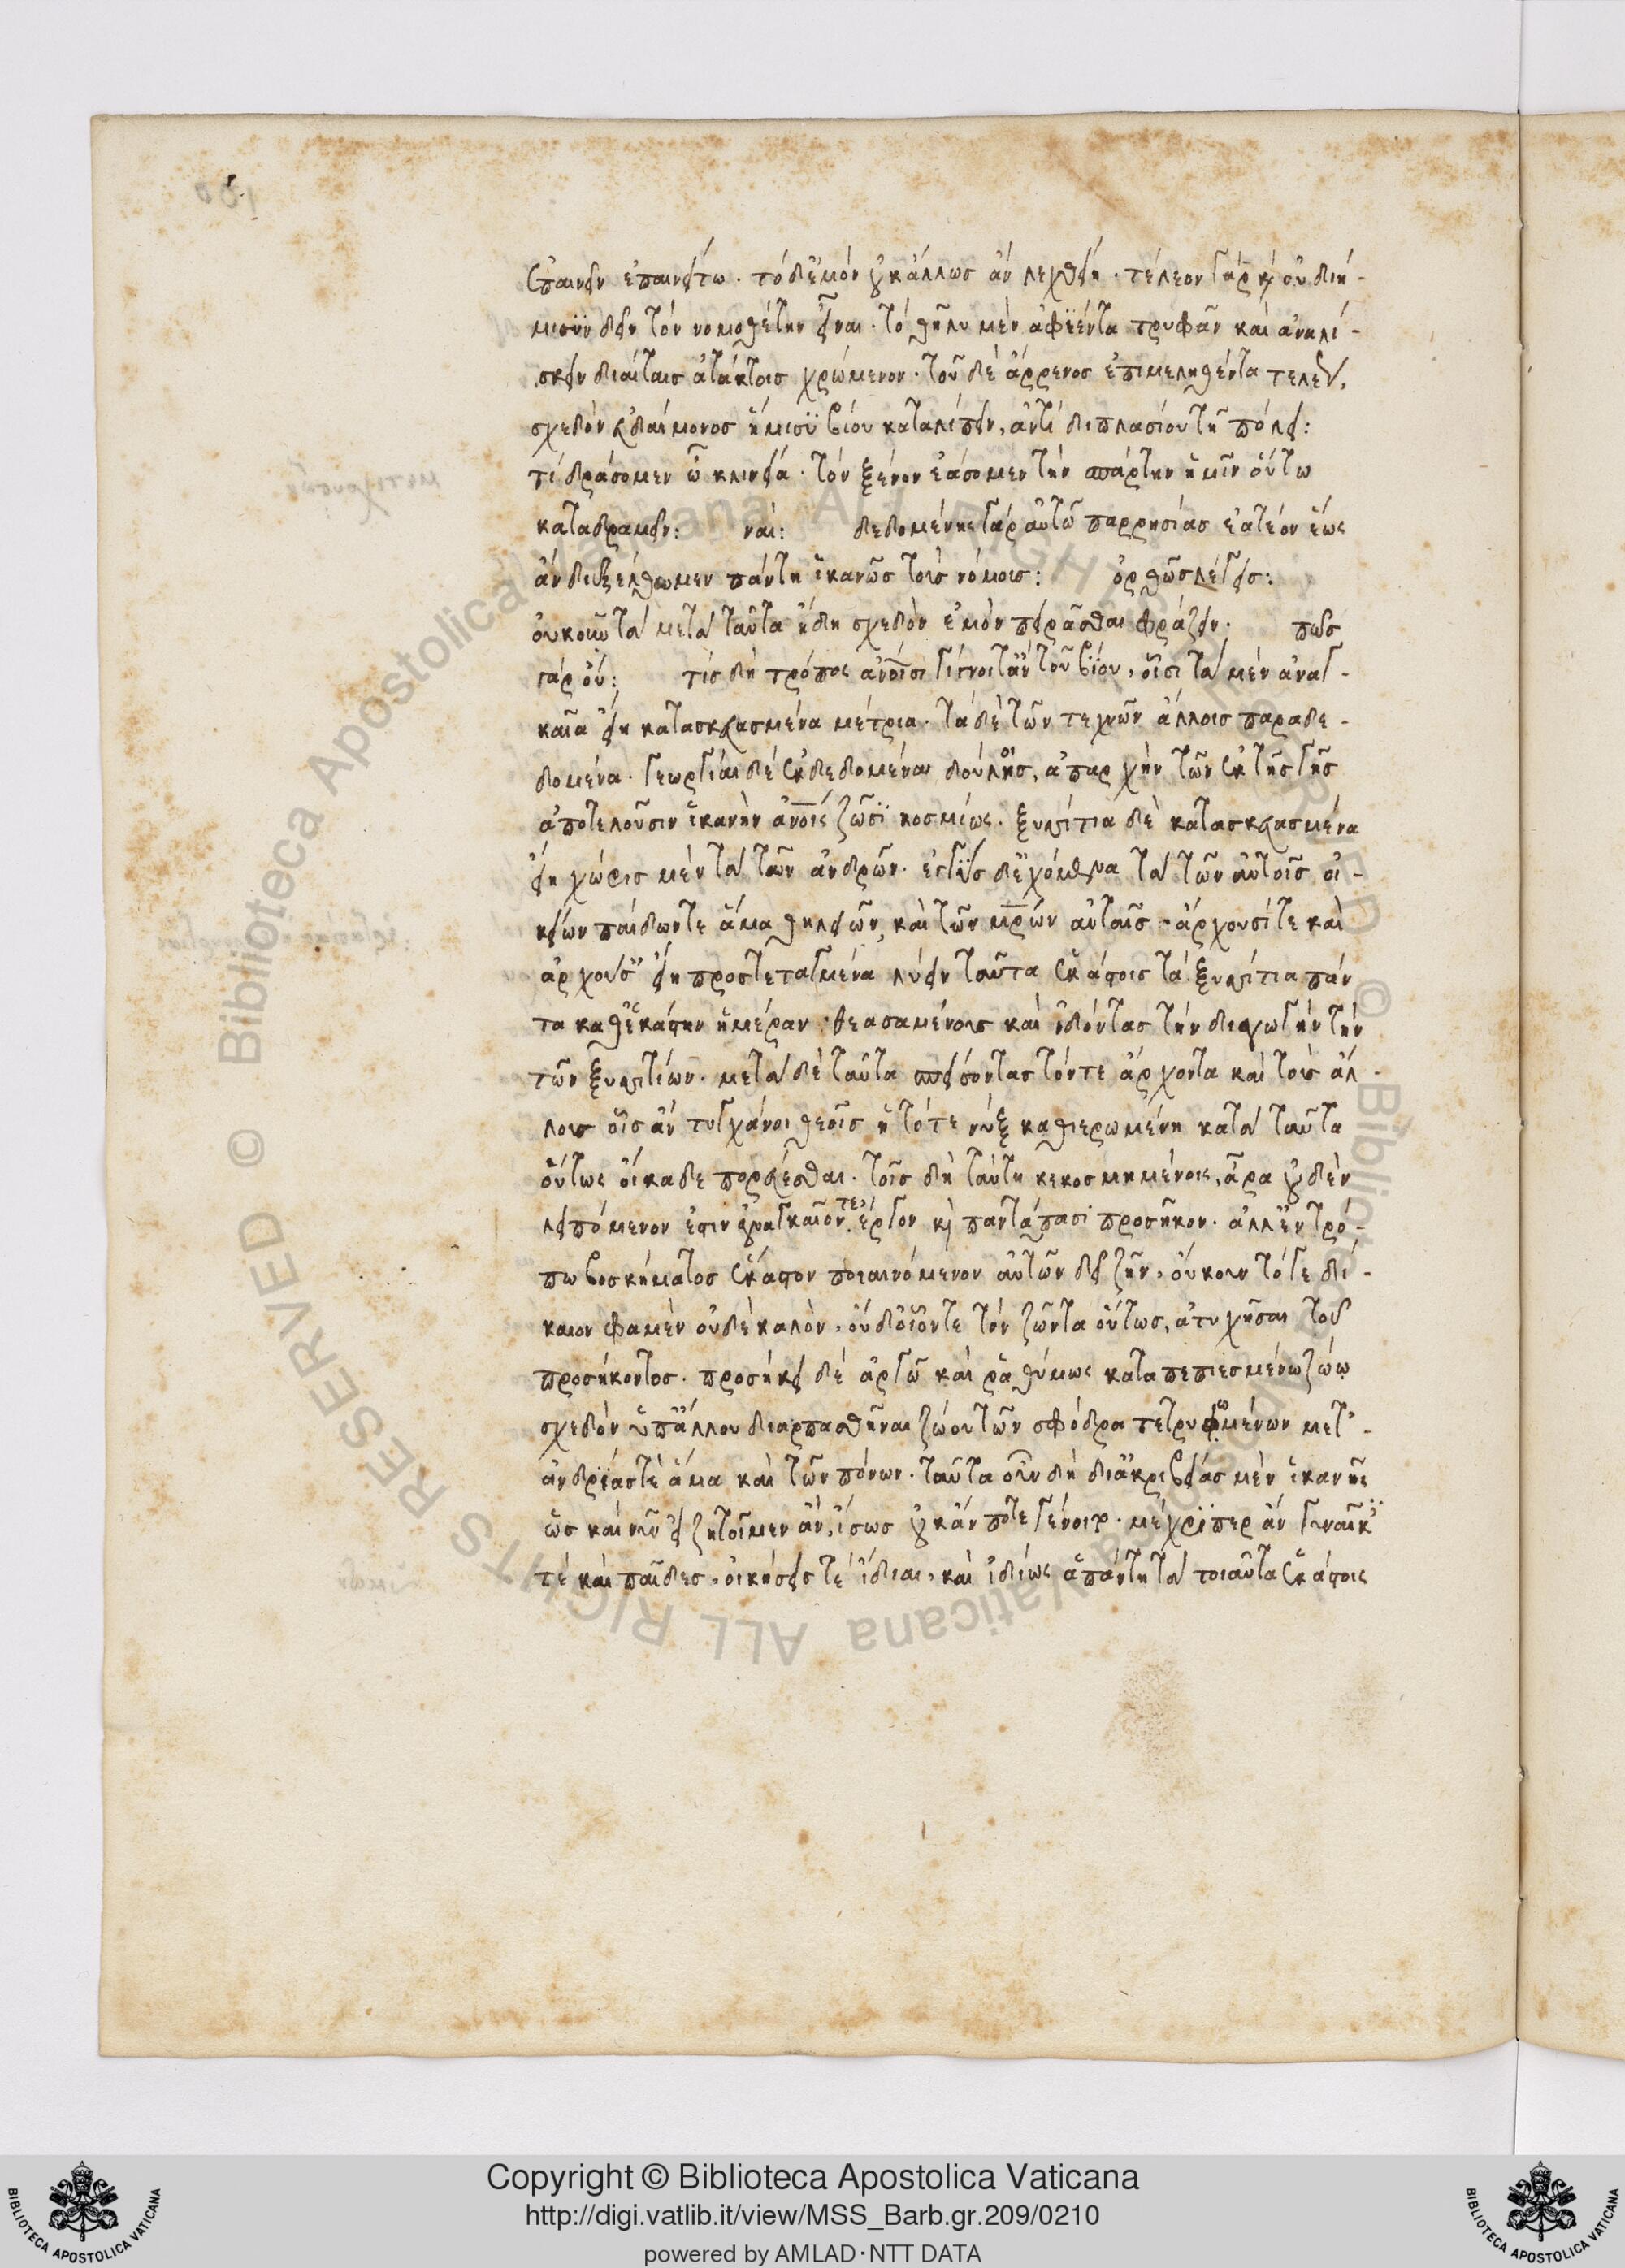 ἐπαινεῖν ἐπαινείτω. τὸ δ' ἐμὸν οὐκ ἄλλως ἂν λεχθείη. τέλεον γὰρ καὶ οὐ διη-
μισυν δεῖν τὸν νομοθέτην εἶναι. τὸ θῆλυ μὲν ἀφϊέντα τρυφᾶν καὶ ἀναλί-
σκειν διαίταις ἀτάκτοις χρώμενον. τοῦ δὲ ἄρρενος ἐπιμεληθέντα τελευ,
σχεδὸν εὐδαίμονος ἥμισϋ βίου καταλείπειν, ἀντὶ διπλασίου τῆ πόλει:
τί δράσομεν ὦ κλεινία. τὸν ξένον ἐάσομεν τὴν σπάρτην ἡμῖν οὕτω
καταδραμεῖν: ναί: δεδομένης γὰρ αὐτῶ παρρησίας ἐατέον ἕως
ἂν διεξέλθωμεν πάντη ἱκανῶς τοὺς νόμους: ὀρθῶς λέγεις:
οὐκοῦν τὰ μετὰ ταῦτα ἤδη σχεδὸν ἐμὸν πειρᾶσθαι φράζειν. πῶς
γὰρ οὔ: τίς δὴ τρόπος ἀνοισι γίγνοιτ' ἂν τοῦ βίου, οἷσι τὰ μὲν ἀναγ-
καῖα εἴη κατασκευασμένα μέτρια. τὰ δὲ τῶν τεχνῶν ἄλλοις παραδε-
δομένα. γεωργίαι δὲ ἐκδεδομέναι δούλοις, ἀπαρχὴν τῶν ἐκ τῆς γῆς
ἀποτελοῦσιν ἱκανὴν ἀνοις ζῶσϊ κοσμίως. ξυσσίτια δὲ κατασκευασμένα
εἴη χωρὶς μὲν τὰ τῶν ἀνδρῶν. ἐγγὺς δ' ἐχόμενα τὰ τῶν αὐτοῖς οἰ-
κείων παίδων τε ἅμα θηλειῶν, καὶ τῶν μρων αὐταῖς. ἄρχουσί τε καὶ
ἀρχούσ εἴη προστεταγμένα λύειν ταῦτα ἑκάστοις τὰ ξυσσίτια πάν
τα καθ' ἑκάστην ἡμέραν. θεασαμένους καὶ ἰδόντας τὴν διαγωγὴν τὴν
τῶν ξυσσιτίων. μετὰ δὲ ταῦτα σπείσαντας τόν τε ἄρχοντα καὶ τοὺς ἄλ-
λους οἷς ἂν τυγχάνοι θεοῖς ἡ τότε νύξ καθιερωμένη κατὰ ταῦτα
οὕτως οἴκαδε πορεύεσθαι. τοῖς δὴ ταύτη κεκοσμημένοις, ἆρα οὐδὲν
λειπόμενον ἐστιν ἀναγκαῖόν τε ἔργον καὶ παντάπασι προσῆκον. ἀλλ' ἐν τρό-
πω βοσκήματος ἕκαστον πιαινόμενον αὐτῶν δεῖ ζῆν, οὔκουν τό γε δί-
καιον φαμὲν οὐδὲ καλὸν, οὐδ' οἷόν τε τὸν ζῶντα οὕτως, ἀτυχῆσαι τοῦ
προσήκοντος. προσήκει δὲ ἀργῶ καὶ ραθύμως καταπεπιεσμένω ζώω
σχεδὸν ὑπ' ἄλλου διαρπασθῆναι ζώου τῶν σφόδρα τετρυφωμένων μετ'
ἀνδρίας τὲ ἅμα καὶ τῶν πόνων. ταῦτα οὖν δὴ δι' ἀκριβείας μὲν ἱκανῆς
ὡς καὶ νῦν εἰ ζητοῖμεν ἂν, ἴσως οὐκ ἄν ποτε γένοιτο. μέχρϊπερ ἂν γυναῖκ
τὲ καὶ παῖδες, οἰκήσεις τὲ ἴδιαι, καὶ ἰδίως ἁπάντη τὰ τοιαῦτα ἑκάστοις
Copyright © Biblioteca Apostolica Vaticana
http://digi.vatlib.it/view/MSS_Barb.gr.209/0210
powered by AMLAD·NTT DATA
BIBLIOTECA APOSTOLICA VATICANA
BIBLIOTECA APOSTOLICA VATICANA
© Biblioteca Apostolica Vaticana ALL RIGHTS RESERVED
© Biblioteca Apostolica Vaticana ALL RIGHTS RESERVED